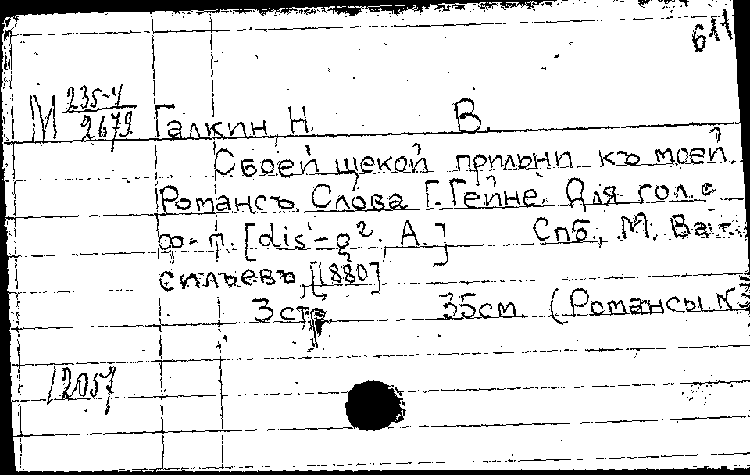 611
М 235-4/2672 Галкин, Н. В.
Своей щекой прильни къ моей.
Романсъ. Слова Г. Гейне. Для гол. с
ф-п. [dis'-g², А.] Спб., М. Ва-
сильевъ, [1880]
3 стр 35см (Романсы №3
12057